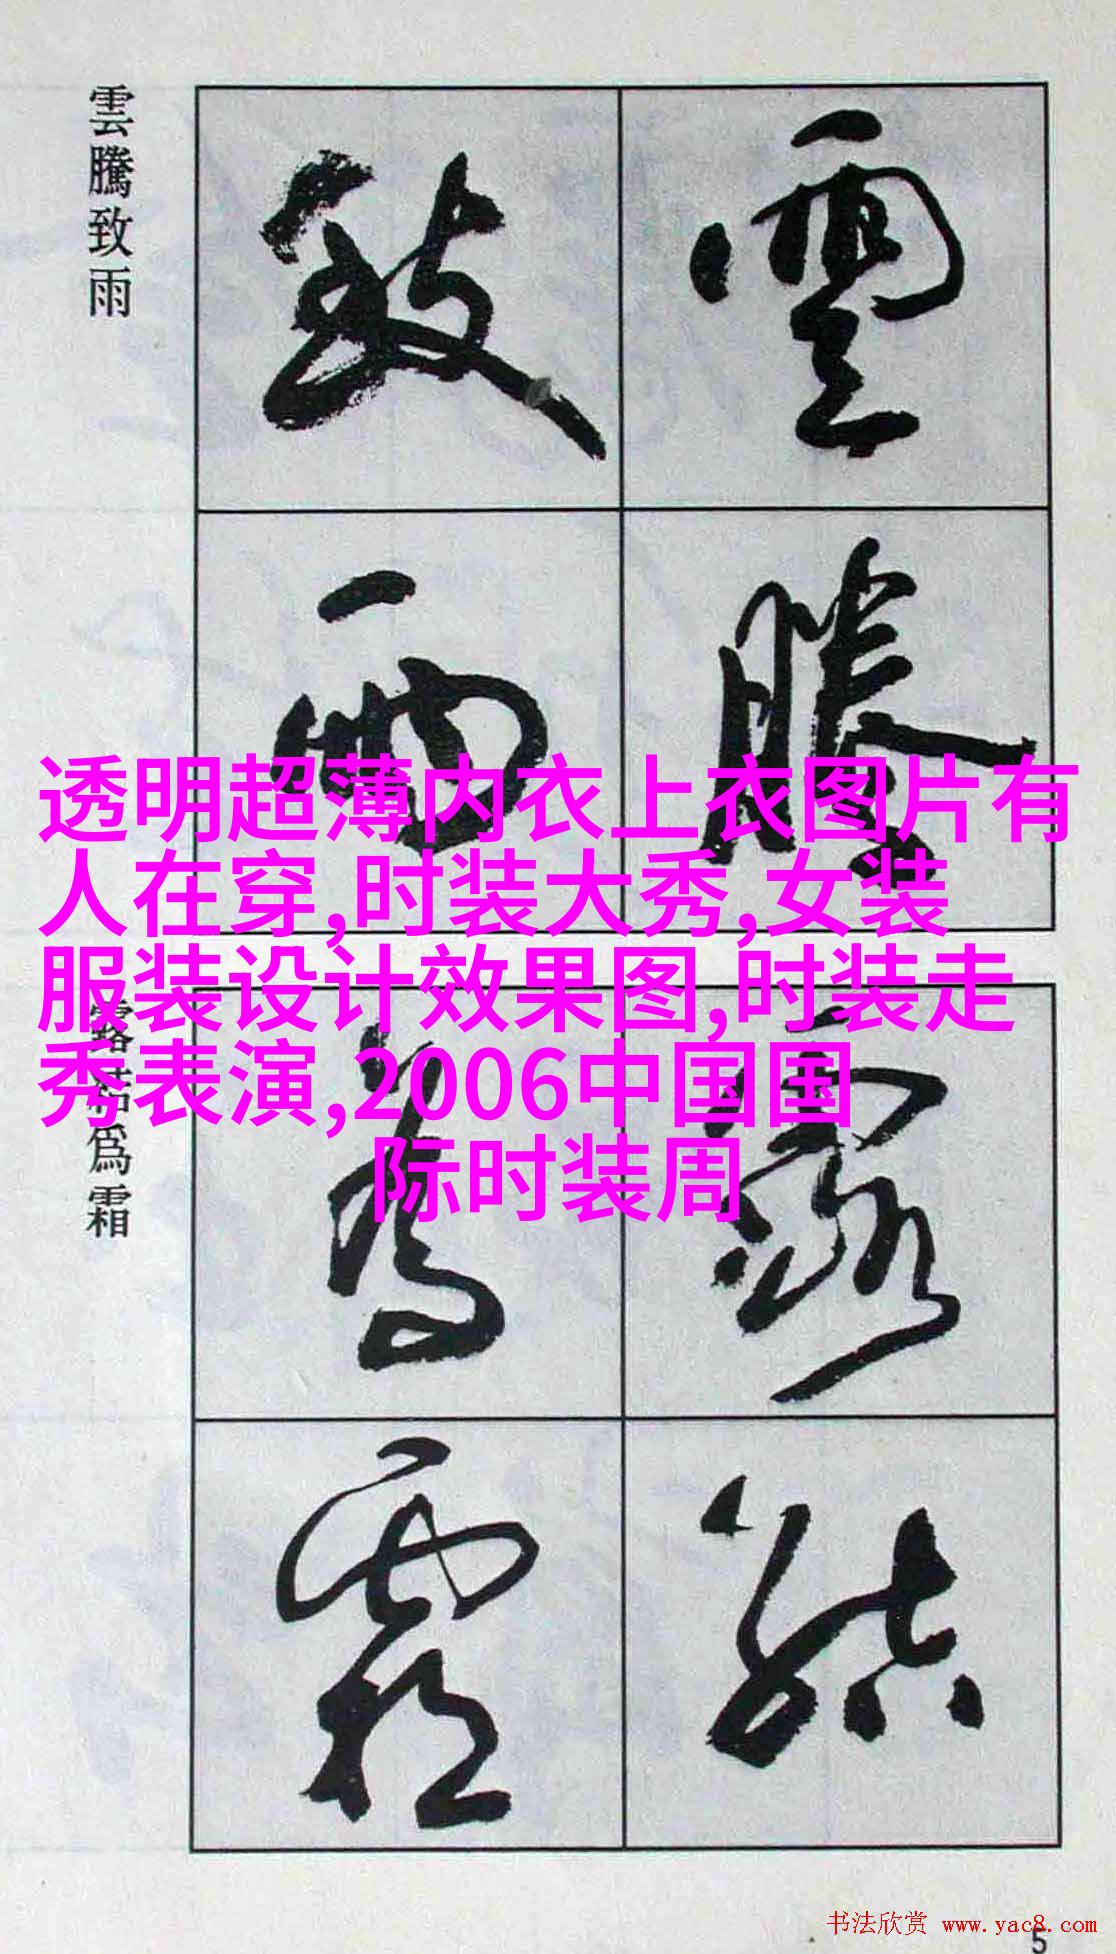 雲騰致雨
雲騰
致雨
透明超薄内衣上衣图片有
人在穿,时装大秀,女装
服装设计效果图,时装走
秀表演,2006中国国
际时装周
露結爲霜
露結
爲霜
书法欣赏 www.yac8.com
5